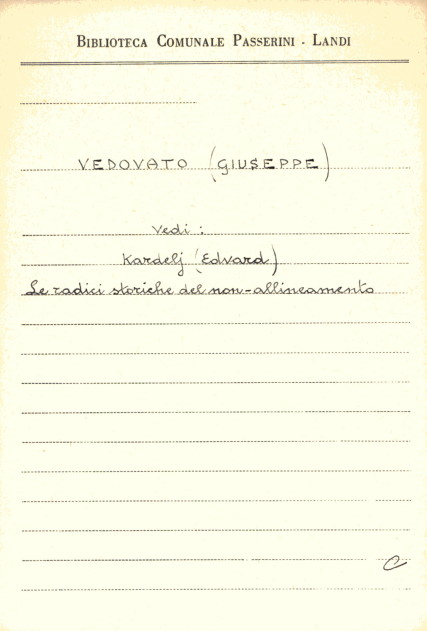 BIBLIOTECA COMUNALE PASSERINI - LANDI
VEDOVATO (GIUSEPPE)
Vedi :
Kardelj (Edvard)
Le radici storiche del non-allineamento
C